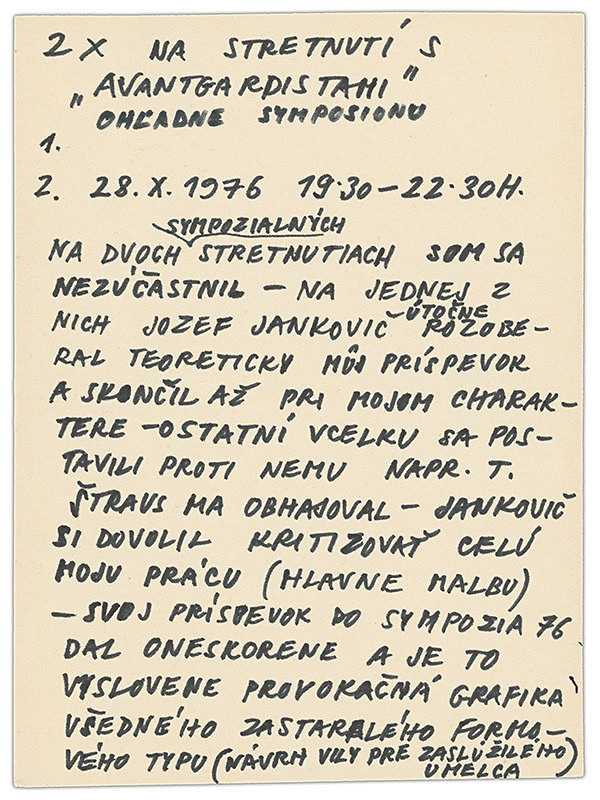 2 X NA STRETNUTÍ S
"AVANTGARDISTAMI"
OHĽADNE SYMPOSIONU
1.
2. 28.X.1976 19.30-22.30H.
SYMPOZIALNÝCH
NA DVOCH STRETNUTIACH SOM SA
NEZÚČASTNIL – NA JEDNEJ Z
ÚTOČNE
NICH JOZEF JANKOVIČ ROZOBE-
RAL TEORETICKY MÔJ PRÍSPEVOK
A SKONČIL AŽ PRI MOJOM CHARAK-
TERE – OSTATNÍ VCELKU SA POS-
TAVILI PROTI NEMU NAPR. T.
ŠTRAUS MA OBHAJOVAL – JANKOVIČ
SI DOVOLIL KRITIZOVAŤ CELÚ
MOJU PRÁCU (HLAVNE MALBU)
– SVOJ PRÍSPEVOK DO SYMPOZIA 76
DAL ONESKORENE A JE TO
VYSLOVENE PROVOKAČNÁ GRAFIKA
VŠEDNÉHO ZASTARALÉHO FORMO-
VÉHO TYPU (NÁVRH VILY PRE ZASLÚŽILÉHO
UMELCA)